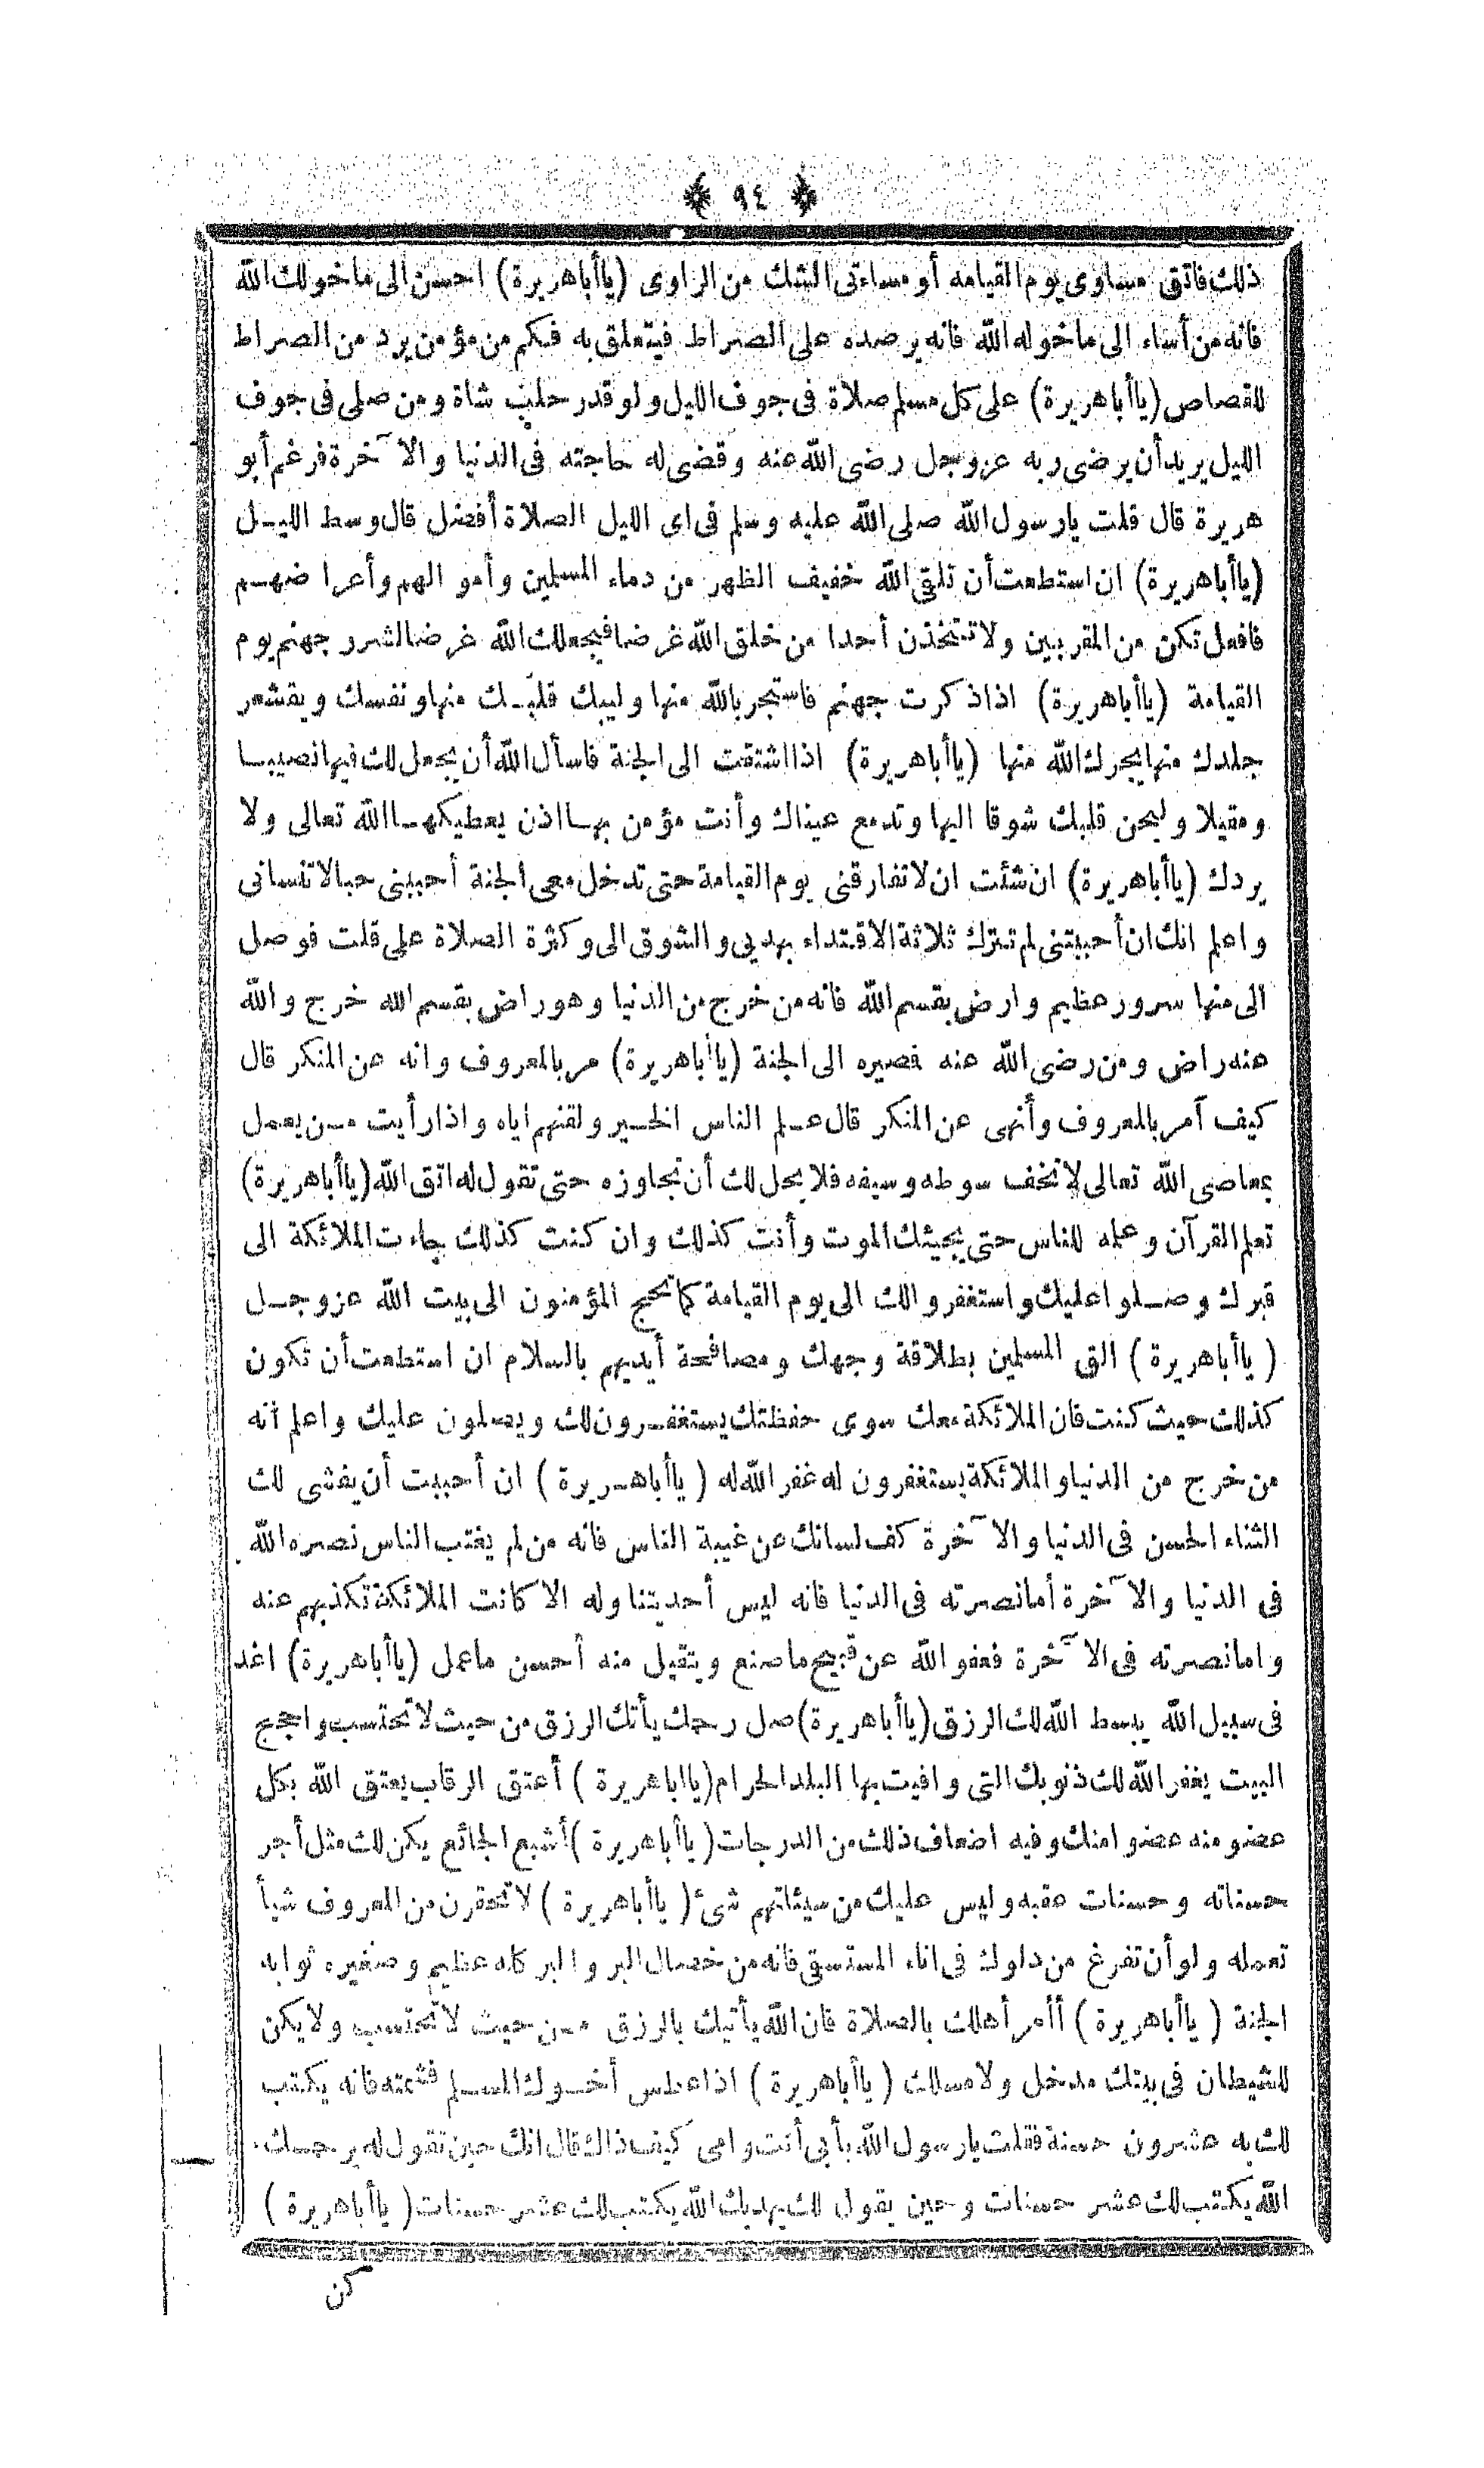 ٩٤
ذلك فاتق مساوى يوم القيامه أو مساءتى الشك من الراوى (يا أبا هريرة) احسن الى ما خولك الله
فانه من أساء الى ما خوله الله فانه يرصده على الصراط فيتعلق به فكم من مؤمن يرد من الصراط
للقصاص (يا أبا هريرة) على كل مسلم صلاة فى جوف الليل ولو قدر حلب شاة ومن صلى فى جوف
الليل يريد أن يرضى ربه عزوجل رضى الله عنه وقضى له حاجته فى الدنيا والآخرة فرغم أبو
هريرة قال قلت يارسول الله صلى الله عليه وسلم فى اى الليل الصلاة أفضل قال وسط الليل
(يا أبا هريرة) ان استطعت أن تلقى الله خفيف الظهر من دماء المسلمين وأموالهم وأعراضهم
فافعل تكن من المقربين ولا تتخذن أحدا من خلق الله غرضا فيجعلك الله غرضا لشرر جهنم يوم
القيامة (يا أبا هريرة) اذا ذكرت جهنم فاستجر بالله منها وليبك قلبك منها ونفسك ويقشعر
جلدك منها يجرك الله منها (يا أبا هريرة) اذا اشتقت الى الجنة فاسأل الله أن يجعل لك فيها نصيبا
ومقيلا وليحن قلبك شوقا اليها وتدمع عيناك وأنت مؤمن بها اذن يعطيكها الله تعالى ولا
يردك (يا أبا هريرة) ان شئت ان لا تفارقنى يوم القيامة حتى تدخل معى الجنة أحببنى حبا لا تنسانى
واعلم انك ان أحببتنى لم تترك ثلاثة الاقتداء بهديى والشوق الى وكثرة الصلاة على قلت فوصل
الى منها سرور عظيم وارض بقسم الله فانه من خرج من الدنيا وهو راض بقسم الله خرج والله
عنه راض ومن رضى الله عنه فصيره الى الجنة (يا أبا هريرة) مر بالمعروف وانه عن المنكر قال
كيف آمر بالمعروف وأنهى عن المنكر قال علم الناس الخير ولقنهم اياه واذا رأيت من يعمل
بمعاصى الله تعالى لا تخف سوطه وسيفه فلا يحل لك أن تجاوزه حتى تقول له اتق الله (يا أبا هريرة)
تعلم القرآن وعلمه للناس حتى يجيئك الموت وأنت كذلك وان كنت كذلك جاءت الملائكة الى
قبرك وصلوا عليك واستغفروا لك الى يوم القيامة كما تحج المؤمنون الى بيت الله عزوجل
(يا أبا هريرة) الق المسلمين بطلاقة وجهك ومصافحة أيديهم بالسلام ان استطعت أن تكون
كذلك حيث كنت فان الملائكة معك سوى حفظتك يستغفرون لك ويصلون عليك واعلم أنه
من خرج من الدنيا والملائكة يستغفرون له غفر الله له (يا أبا هريرة) ان أحببت أن يفشى لك
الثناء الحسن فى الدنيا والآخرة كف لسانك عن غيبة الناس فانه من لم يغتب الناس نصره الله
فى الدنيا والآخرة أما نصرته فى الدنيا فانه ليس أحد يتناوله الا كانت الملائكة تكذبهم عنه
واما نصرته فى الآخرة فعفو الله عن قبيح ما صنع ويتقبل منه أحسن ما عمل (يا أبا هريرة) اغد
فى سبيل الله يبسط الله لك الرزق (يا أبا هريرة) صل رحمك يأتك الرزق من حيث لا تحتسب واحجج
البيت يغفر الله لك ذنوبك التى وافيت بها البلد الحرام (يا ابا هريرة) أعتق الرقاب يعتق الله بكل
عضو منه عضوا منك وفيه اضعاف ذلك من الدرجات (يا أبا هريرة) أشبع الجائع يكن لك مثل أجر
حسناته وحسنات عقبه وليس عليك من سيئاتهم شئ (يا أبا هريرة) لا تحقرن من المعروف شيأ
تعمله ولو أن تفرغ من دلوك فى اناء المستسقى فانه من خصال البر والبر كله عظيم وصغيره ثوابه
الجنة (يا أبا هريرة) أأمر أهلك بالصلاة فان الله يأتيك بالرزق من حيث لا تحتسب ولا يكن
للشيطان فى بيتك مدخل ولا مسلك (يا أبا هريرة) اذا عطس أخوك المسلم فشمته فانه يكتب
لك به عشرون حسنة فقلت يارسول الله بأبى أنت وامى كيف ذاك قال انك حين تقول له يرحمك
الله يكتب لك عشر حسنات وحين يقول لك يهديك الله يكتب لك عشر حسنات (يا أبا هريرة)
كن